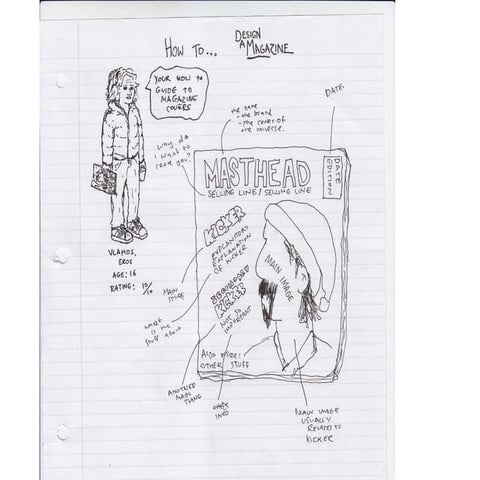 HOW TO...
DESIGN
A MAGAZINE
YOUR HOW TO
GUIDE TO
MAGAZINE
COVERS
DATE:
the name
- the brand
- the center of
the universe.
Why do
I want to
read you?
MASTHEAD
SELLING LINE / SELLING LINE
DATE
EDITION
KICKER
EXPLANATORY
EXPLANATION
OF KICKER
MAIN IMAGE
VLAHOS,
EROS
AGE: 16
RATING: 10/10
MAIN
STUFF
WHAT
IS THE
STUFF ABOUT
KICKER
NOT SO
IMPORTANT
Also inside:
OTHER STUFF
ANOTHER
MAIN
THING
OTHER
INFO
MAIN IMAGE
USUALLY
RELATES TO
KICKER